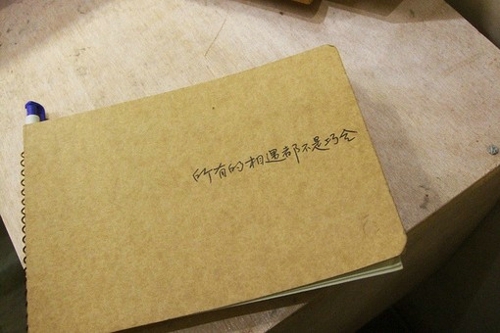 所有的相遇都不是巧合